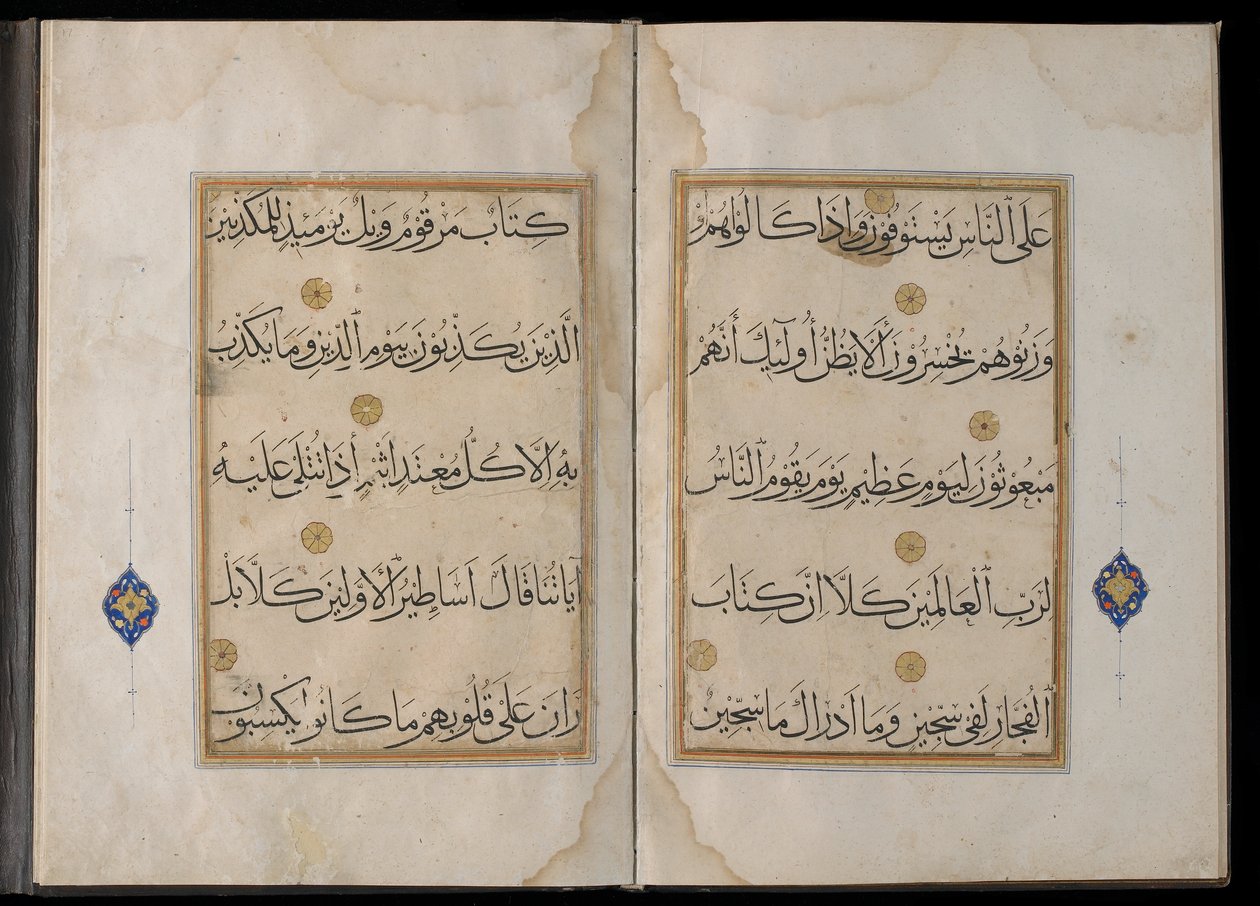 عَلَى ٱلنَّاسِ يَسْتَوْفُوْنَ وَاِذَا كَالُوْاهُمْ اَوْ
وَزَنُوْهُمْ يُخْسِرُوْنَ أَلَا يَظُنُّ أُولَٓئِكَ أَنَّهُمْ
مَبْعُوْثُوْنَ لِيَوْمٍ عَظِيْمٍ يَوْمَ يَقُوْمُ ٱلنَّاسُ
لِرَبِّ ٱلْعَالَمِيْنَ كَلَّا اِنَّ كِتَابَ
ٱلْفُجَّارِ لَفِى سِجِّيْنٍ وَمَا اَدْرَاكَ مَا سِجِّيْنٌ
كِتَابٌ مَرْقُوْمٌ وَيْلٌ يَوْمَئِذٍ لِلْمُكَذِّبِيْنَ
الَّذِيْنَ يُكَذِّبُوْنَ بِيَوْمِ ٱلدِّيْنِ وَمَا يُكَذِّبُ
بِهٖ اِلَّا كُلُّ مُعْتَدٍ اَثِيْمٍ أِذَا تُتْلَى عَلَيْهِ
آيَاتُنَا قَالَ اَسَاطِيْرُ ٱلْاَوَّلِيْنَ كَلَّا بَلْ
رَانَ عَلَى قُلُوْبِهِمْ مَا كَانُوا يَكْسِبُوْنَ